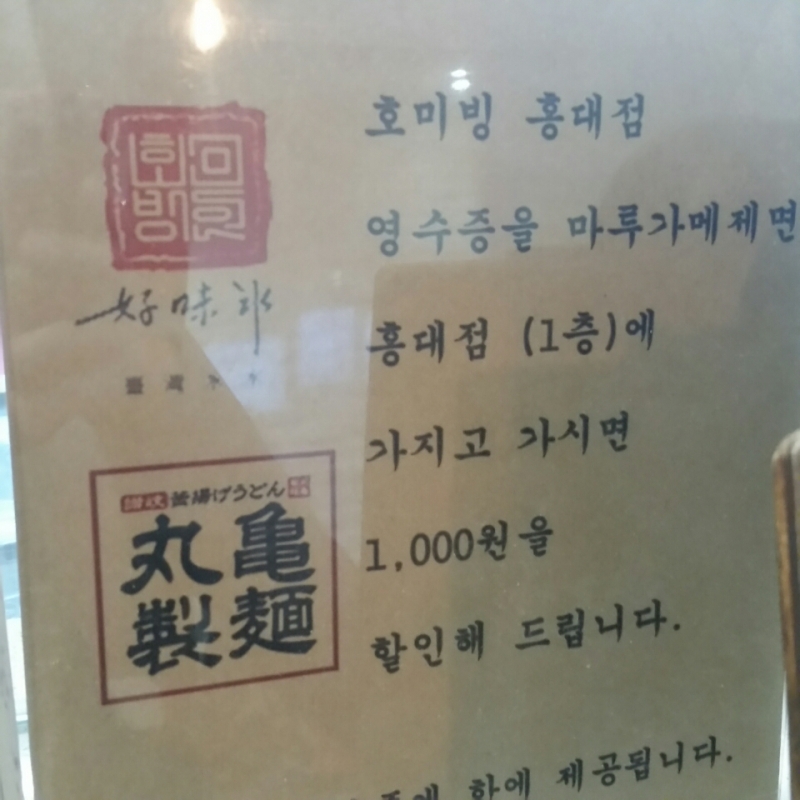 호미빙
好味氷
釜揚げうどん
丸亀
製麺
호미빙 홍대점
영수증을 마루가메제면
홍대점 (1층)에
가지고 가시면
1,000원을
할인해 드립니다.
한에 제공됩니다.